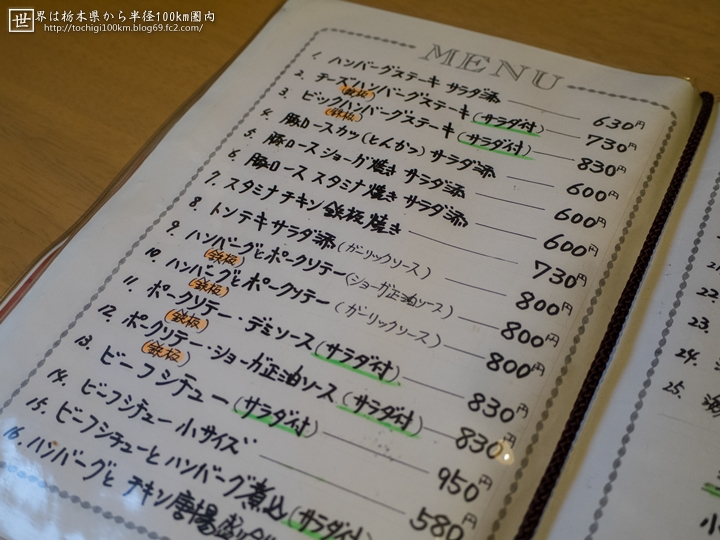 世界は栃木県から半径100km圏内
http://tochigi100km.blog69.fc2.com/
MENU
1. ハンバーグステーキ サラダ添 630円
2. チーズハンバーグステーキ (サラダ付) 730円
鉄板
3. ビックハンバーグステーキ (サラダ付) 830円
鉄板
4. 豚ロースカツ(とんかつ) サラダ添 600円
5. 豚ロースショーガ焼き サラダ添 600円
6. 豚ロース スタミナ焼き サラダ添 600円
7. スタミナチキン鉄板焼き 730円
8. トンテキサラダ添 (ガーリックソース) 800円
9. ハンバーグとポークソテー (ショーガ正油ソース) 800円
鉄板
10. ハンバーグとポークソテー (ガーリックソース) 800円
鉄板
11. ポークソテー・デミソース (サラダ付) 830円
鉄板
12. ポークソテー・ショーガ正油ソース (サラダ付) 830円
鉄板
13. ビーフシチュー (サラダ付) 950円
14. ビーフシチュー小サイズ 580円
15. ビーフシチューとハンバーグ煮込 (サラダ付)
16. ハンバーグとチキン唐揚
22.
23.
24.
25.